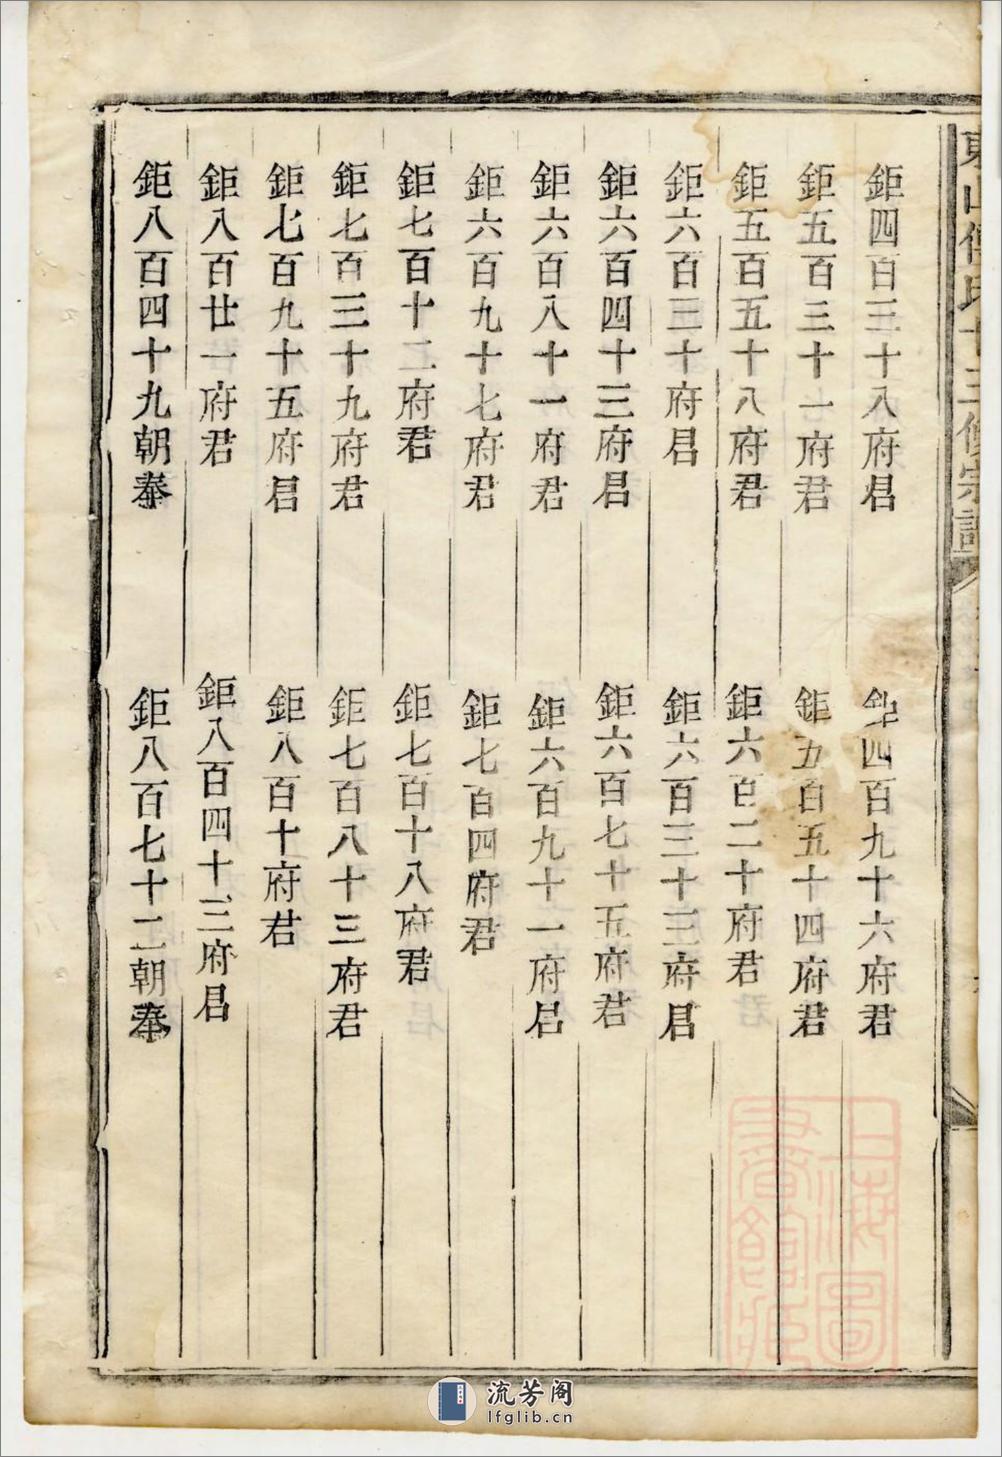 鉅四百三十八府君
鉅四百九十六府君
鉅五百三十一府君
鉅五百五十四府君
鉅五百五十八府君
鉅六百二十府君
鉅六百三十府君
鉅六百三十三府君
鉅六百四十三府君
鉅六百七十五府君
鉅六百八十一府君
鉅六百九十一府君
鉅六百九十七府君
鉅七百四府君
鉅七百十二府君
鉅七百十八府君
鉅七百三十九府君
鉅七百八十三府君
鉅七百九十五府君
鉅八百十府君
鉅八百廿一府君
鉅八百四十三府君
鉅八百四十九朝奉
鉅八百七十二朝奉
上海圖
書館藏
流芳阁
lfglib.cn